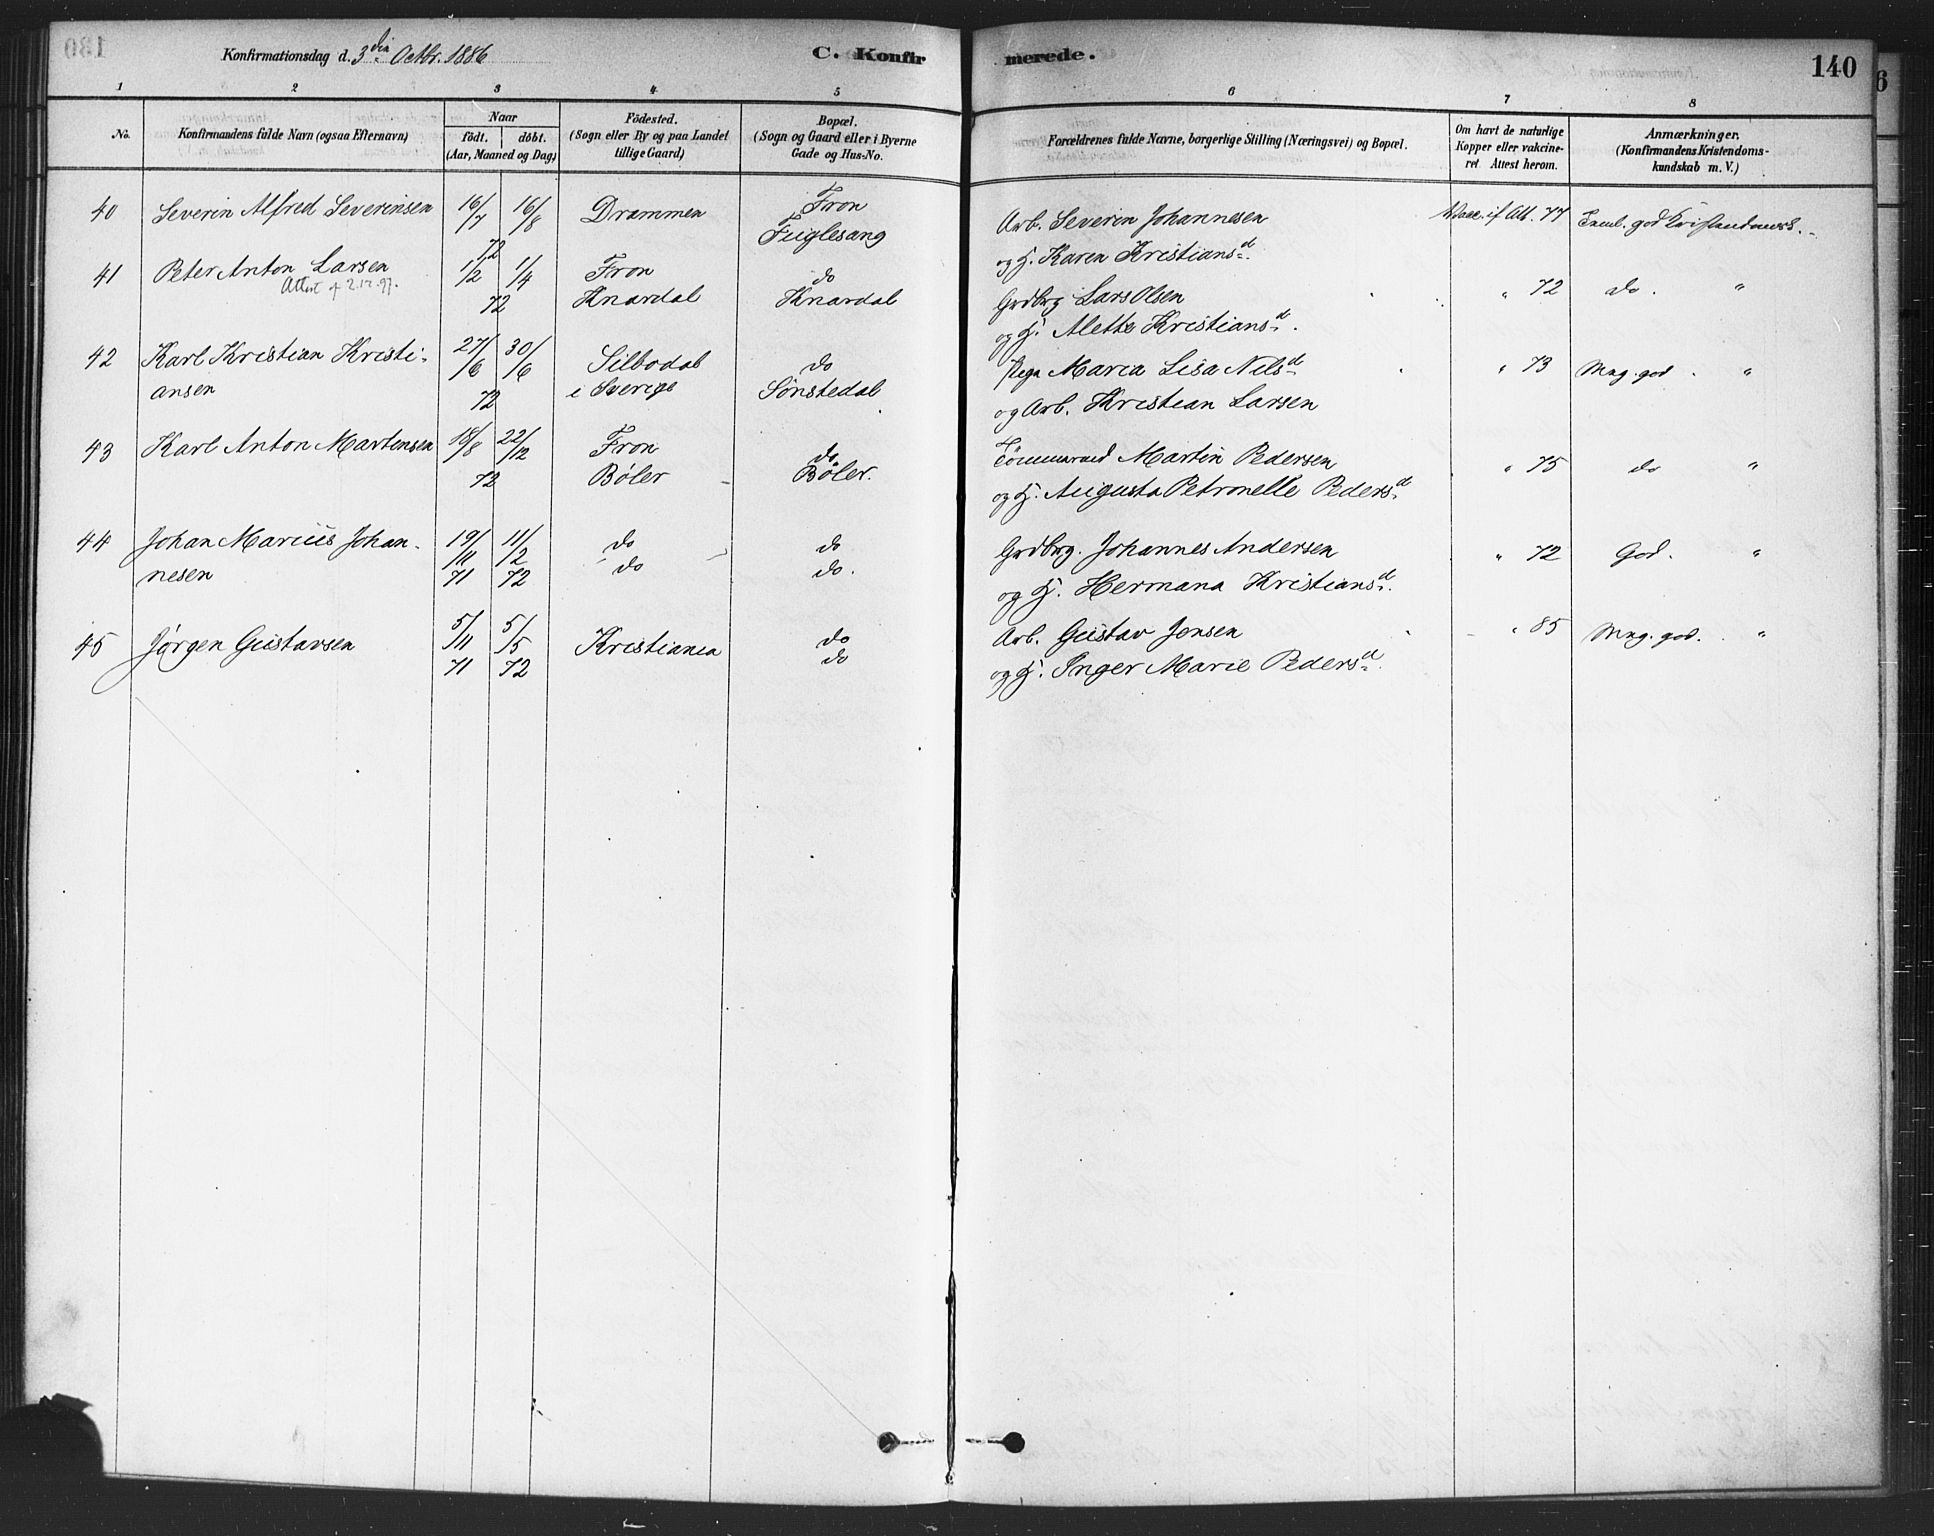 130
Konfirmationsdag d. 3die Octbr. 1886
C. Konfirmerede.
140
1 2 3 4 5 6 7 8
No.
Konfirmandens fulde Navn (ogsaa Efternavn)
Naar
födt. döbt.
(Aar, Maaned og Dag)
Födested.
(Sogn eller By og paa Landet
tillige Gaard)
Bopæl.
(Sogn og Gaard eller i Byerne
Gade og Hus-No.
Forældrenes fulde Navne, borgerlige Stilling (Næringsvei) og Bopæl.
Om havt de naturlige
Kopper eller vakcine-
ret. Attest herom.
Anmærkninger.
(Konfirmandens Kristendoms-
kundskab m. V.)
40 Severin Alfred Severinsen 16/7 16/8 Drammen Fron Arb. Severin Johannesen Vacc. if Att. 77 Taml. god Kristendomsk.
72 Fuglesang og H. Karen Kristiansd.
41 Peter Anton Larsen 1/2 1/4 Fron do Grdbrg Lars Olsen " 72 do. "
Attest 2.12.97.
72 Knardal Knardal og H. Alette Kristiansd.
42 Karl Kristian Kristi- 27/6 30/6 Silbodal do Pige Maria Lisa Nilsd. " 73 Mng. god "
ansen 72 i Sverige Sönstedal og Arb. Kristian Larsen
43 Karl Anton Martinsen 18/8 22/12 Fron do Tömmermd Martin Pedersen " 75 do "
72 Bøler Bøler. og H. Augusta Petronelle Pedersd.
44 Johan Marius Johan- 19/11 11/2 do do Grdbrg. Johannes Andersen " 72 God. "
nesen 71 72 do do. og H. Hermana Kristiansd.
45 Jørgen Gustavsen 5/11 5/5 Kristiania do Arb. Gustav Jensen " 85 Mng. god. "
71 72 do og H. Inger Marie Pedersd.
6